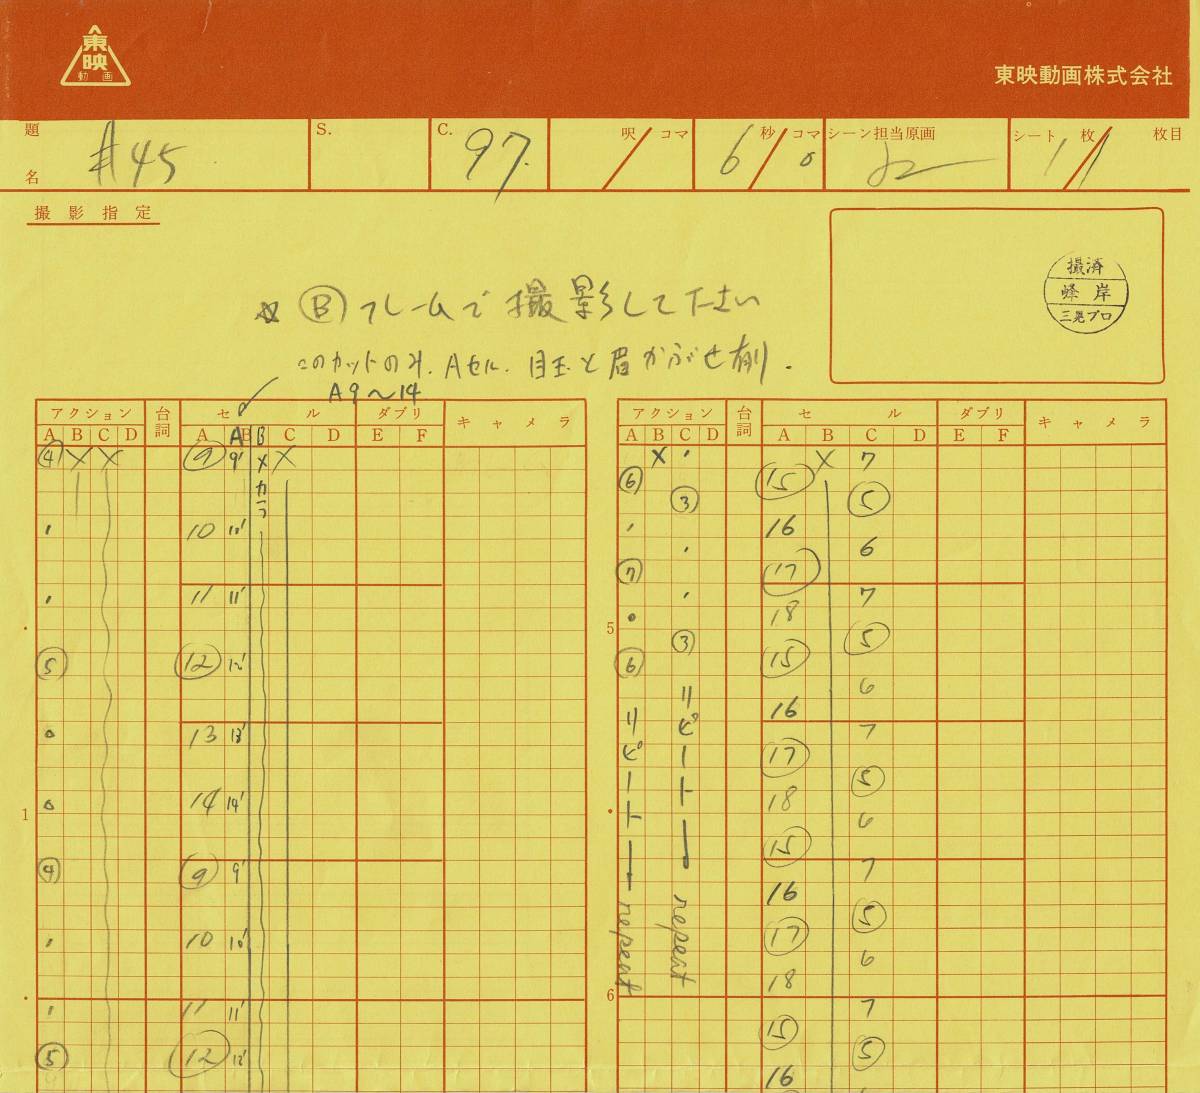 東映
動画
東映動画株式会社
題名 #45
S.
C. 97.
呎/コマ
6秒/0コマ
シーン担当原画
シート 1枚/1枚目
撮影指定
撮済
峰岸
三晃プロ
Ⓑフレームで撮影して下さい
このカットのみ、Aセル、目玉と眉かぶせ有り.
A9〜14
アクション 台詞 セル ダブリ キャメラ
A B C D A B C D E F
A B
④ × × ⑨ 9' × ×
カラ
10 10'
11 11'
⑤ ⑫ 12'
13 13'
1
14 14'
④ ⑨ 9'
10 10'
11 11'
⑤ ⑫ 12'
アクション 台詞 セル ダブリ キャメラ
A B C D A B C D E F
× × 7
⑥ ⑮
③ ⑤
16
6
⑦ ⑰
7
18
5
③ ⑤
⑥ ⑮
6
リピート リピート
16
7
⑰
⑤
18
6
⑮
7
16
repeat repeat
⑤
⑰
6
18
6
7
⑮
⑤
16